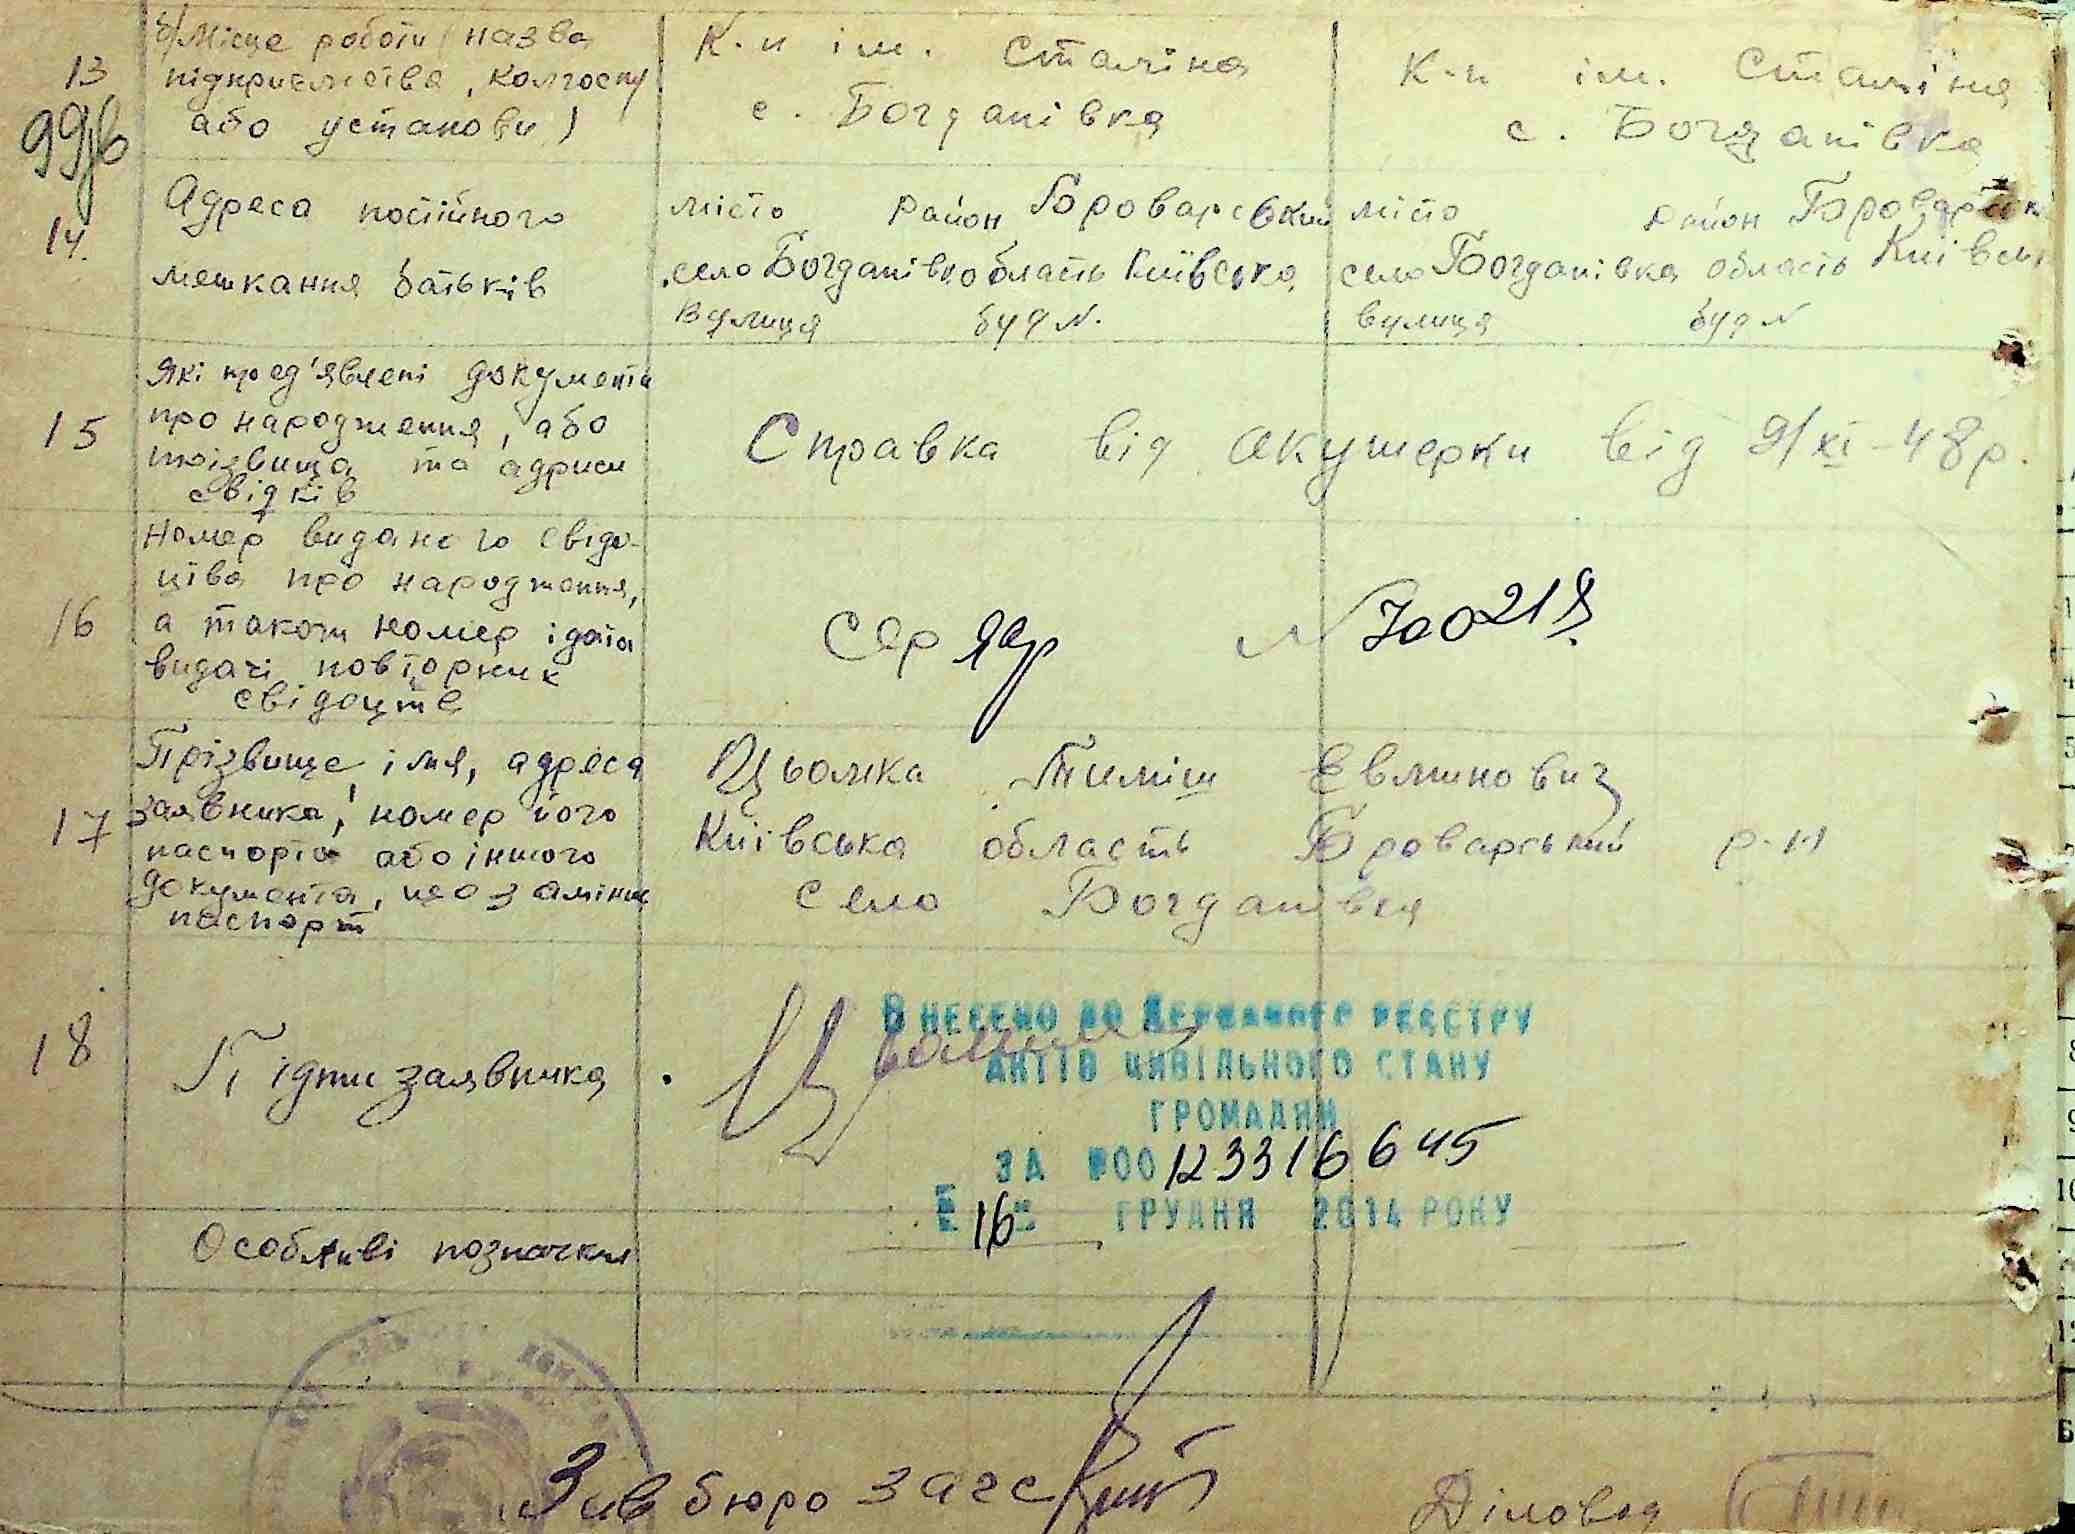 б/ Місце роботи (назва
13 підприємства, колгоспу
або установи)
К-п ім. Сталіна
с. Богданівка
К-п ім. Сталіна
с. Богданівка
99
14. Адреса постійного
мешкання батьків
місто район Броварський
село Богданівка область Київська
вулиця буд №.
місто район Броварськ
село Богданівка область Київськ
вулиця буд №
Які пред'явлені документи
15 про народження, або
прізвища та адриси
свідків
Справка від акушерки від 9/XI-48 р.
Номер виданого свідо-
цтва про народження,
16 а також номер і дата
видачі повторних
свідоцтв
Сер ЯР № 700219
Прізвище, імя, адреса
17 заявника, номер його
паспорта або іншого
документа, що заміняє
паспорт
Цьомка Тиміш Евминович
Київська область Броварський р-н
село Богданівка
18 Підпис заявника
ВНЕСЕНО ДО ДЕРЖАВНОГО РЕЄСТРУ
АКТІВ ЦИВІЛЬНОГО СТАНУ
ГРОМАДЯН
ЗА №00123316645
"16" ГРУДНЯ 2014 РОКУ
Особливі позначки
Зав бюро загс
Діловод